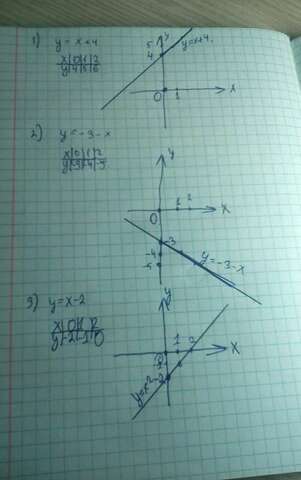 1) y = x+4
x|0|1|2
y|4|5|6
y
5
4
y=x+4
0 1 x
2) y = -3-x
x|0|1|2
y|-3|-4|-5
y
0 1 2 x
-3
-4
-5
y=-3-x
3) y=x-2
x|0|1|2
y|-2|-1|0
y
1 2 x
0
-2